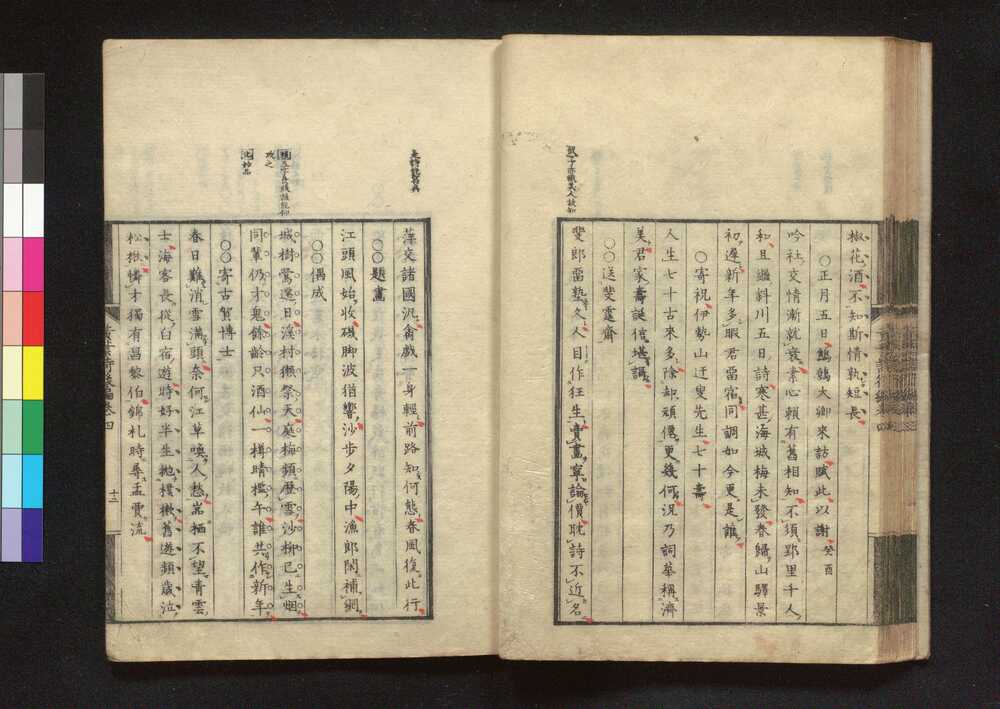 椒花酒不知斯情孰短長
〇正月五日鷦鷯大卿來訪賦此以謝癸酉
吟社交情漸就衰素心賴有舊相知不須郢里千人
和且繼斜川五日詩寒甚海城梅未發春歸山驛景
初遲新年多暇君當宿同調如今更是誰
〇寄祝伊勢山迂叟先生七十壽
人生七十古來多除却頑僊更幾何況乃詞華稱濟
美君家壽誕信堪謌
〇〇送斐霆齋
斐郎當塾久人目作狂生賣畫寧論價耽詩不近名
萍交諸國汎禽戲一身輕前路知何態春風復此行
〇〇題畫
江頭風始收磯脚波猶響沙步夕陽中漁郎閑補網
〇〇偶成
城樹鶯遷日溪村獺祭天庭梅頻歷雪沙柳已生烟
同輩仍才鬼餘齡只酒仙一樽晴檻午誰共作新年
〇〇寄古賀博士
春日難消雪滿頭奈何江草喚人愁嵓栖不望青雲
士海客長從白宿遊時好半生抛樸樕舊遊頻歲泣
松楸憐才獨有昌黎伯錦札時尋孟賈流
十二